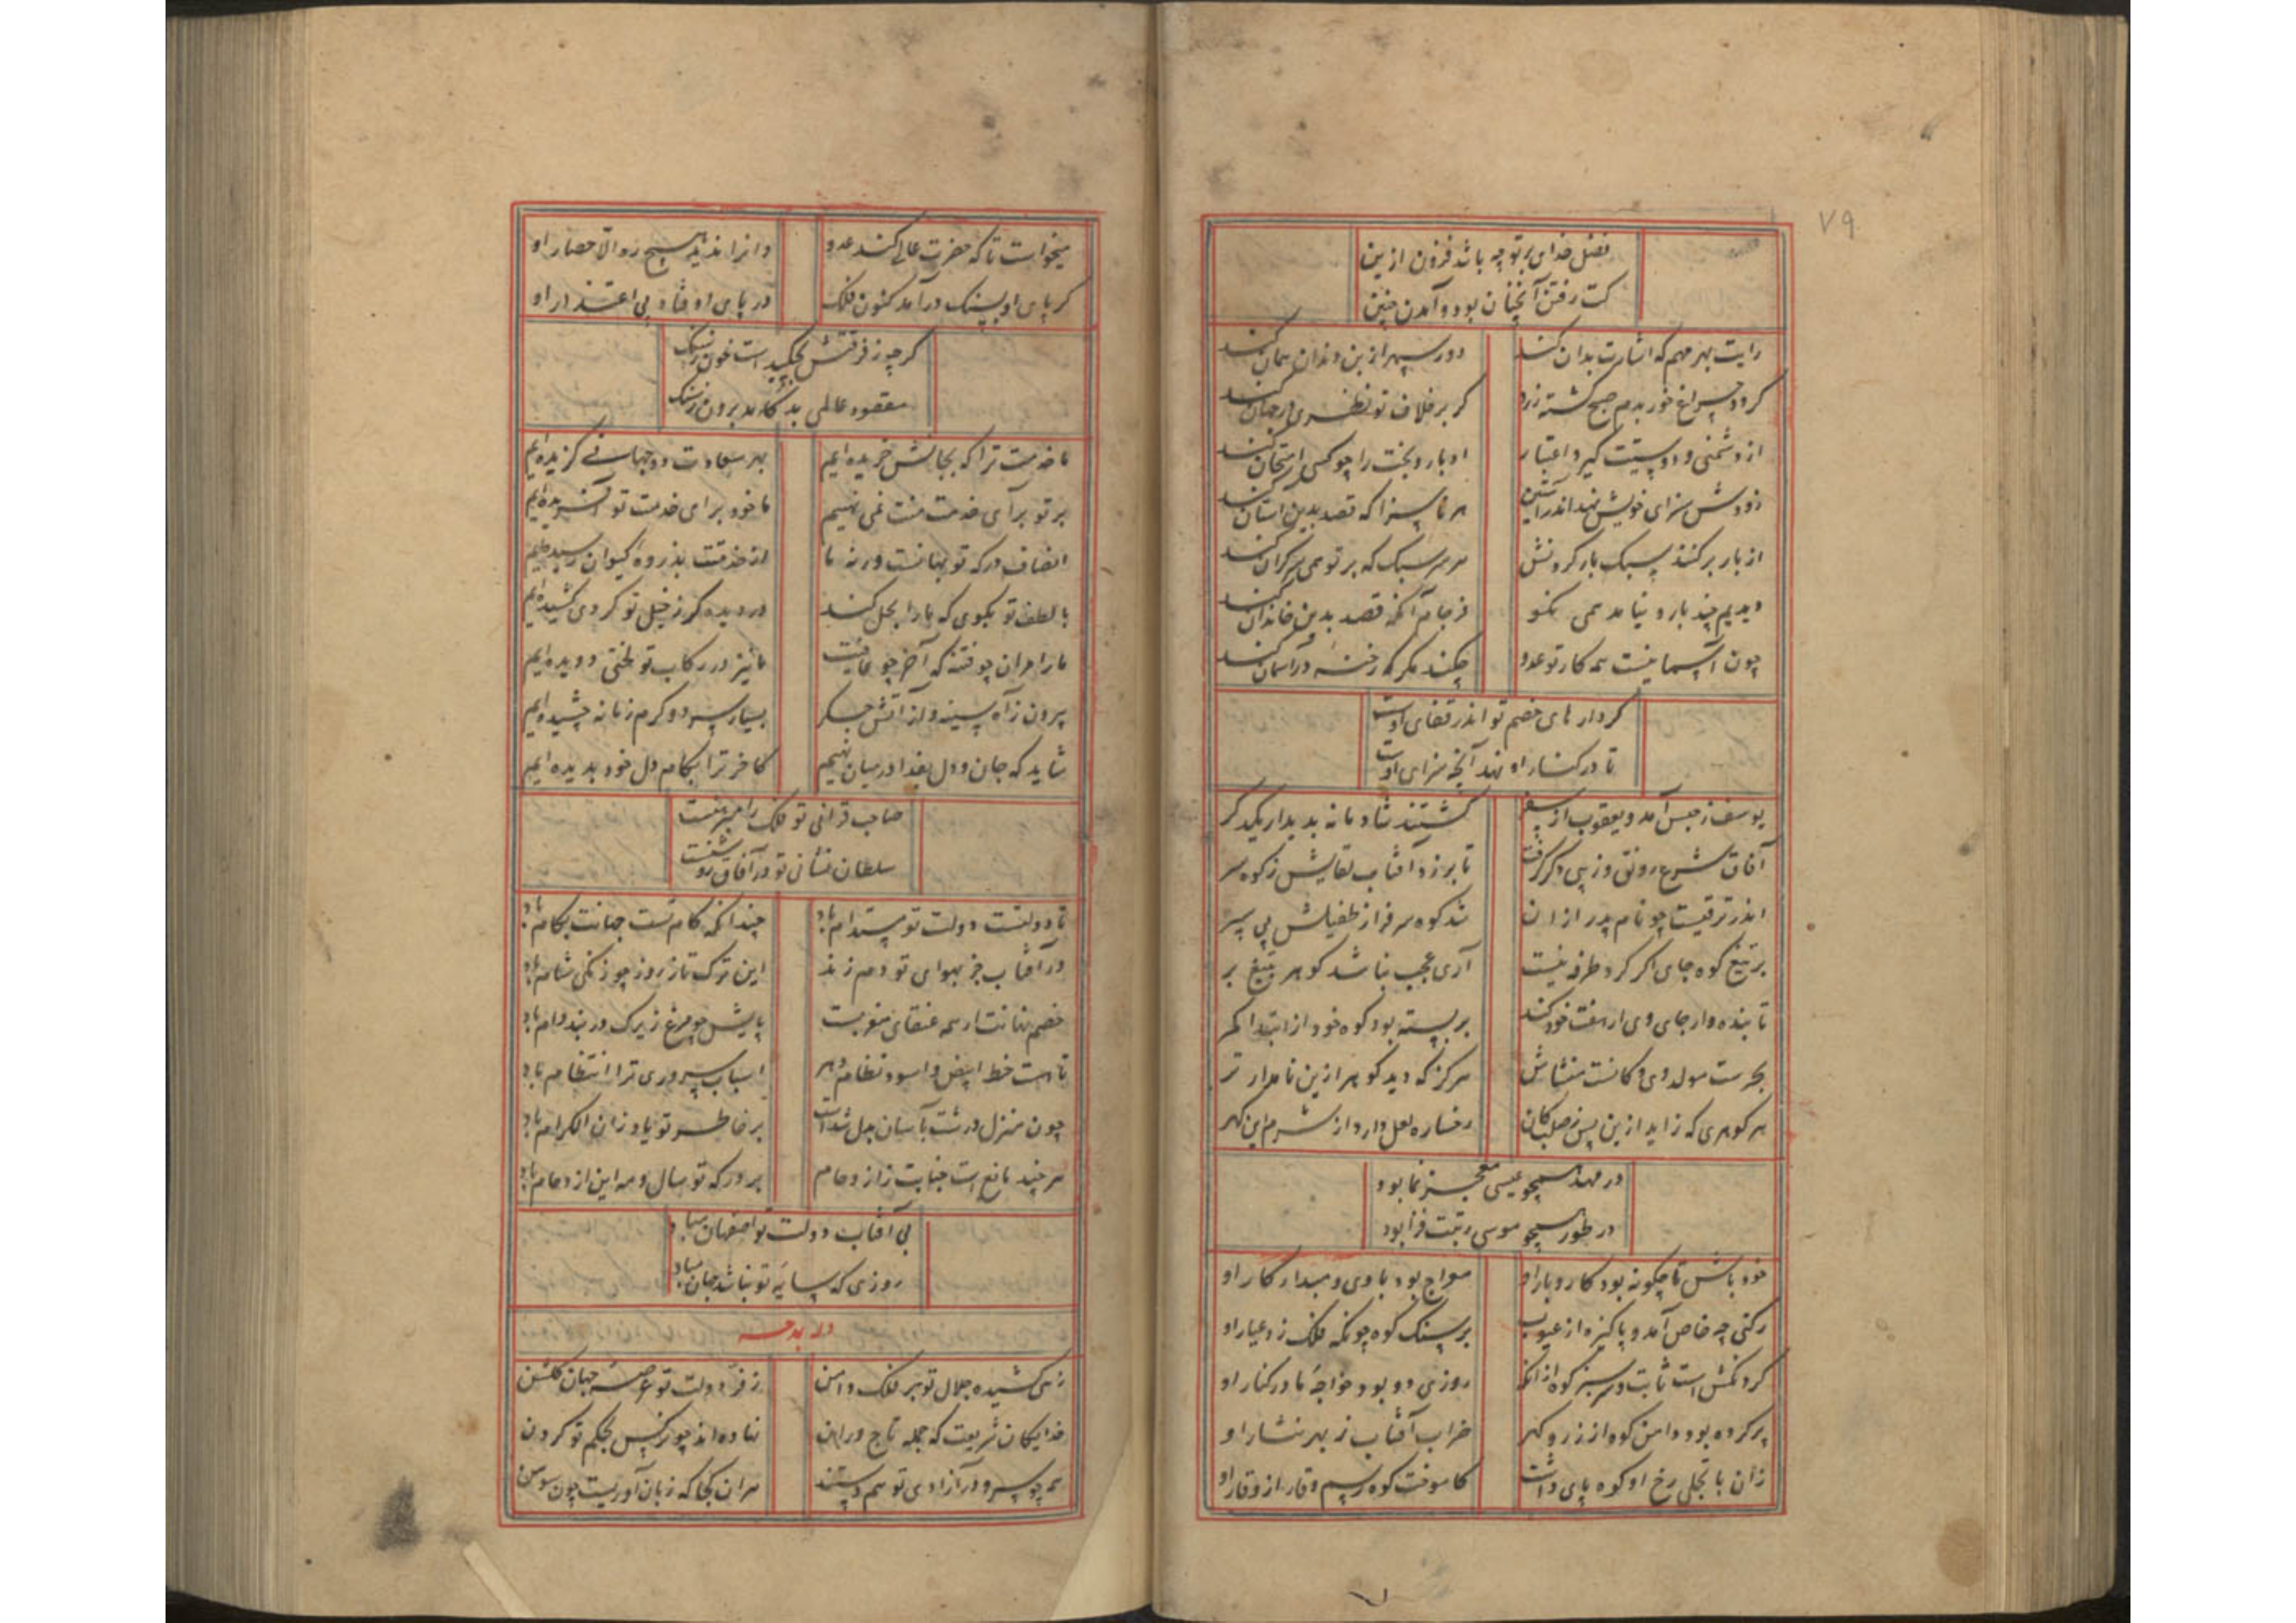 ۷۹
فضل خدای بر تو چه باشد فزون ازین
کت رفتن آنچنان بود و آمدن چنین
رایت بهر مهم که اشارت بدان کند
دور سپهر از بن دندان همان کند
گردد چراغ خور بدم صبح کشته زود
گر بر خلاف تو نظری در جهان کند
از دشمنی و دوستیت گیرد اعتبار
ادبار و بخت را چو کسی امتحان کند
زودش سزای خویش نهد اندر آستین
هر ناسزا که قصد بدین آستان کند
از بار برکند سبک بار گردنش
هر سر سبک که بر تو همی سر گران کند
دیدیم چند بار و نیامد همی نکو
فرجام آنکه قصد بدین خاندان کند
چون آسمانیست همه کار تو عدو
چکند مگر که رخنه در آسمان کند
کردار های خصم تو اندر قفای اوست
تا در کنار او نهد آنچه سزای اوست
یوسف ز حبس آمد و یعقوب از سفر
گشتند شادمانه بدیدار یکدگر
آفاق شرع رونق و زیبی دگر گرفت
تا بر زد آفتاب لقایش ز کوه سر
اندر ترقیست چو نام پدر از ان
شد کوه سرفراز طفیلش پی سپر
بر تیغ کوه جای اگر کرد طرفه نیست
آری عجب نباشد گوهر بتیغ بر
تا بنده وار جای وی ار هفت خود کند
بر بسته بود کوه خود از ابتدا کمر
بحرست مولد وی و کانست منشاش
هرگز که دید گوهر ازین نامدار تر
هر گوهری که زاید ازین پس ز صلب کان
رخساره لعل دارد از شرم این گهر
در مهد همچو عیسی معجز نما بود
در طور همچو موسی رتبت فزا بود
خود باش تا چگونه بود کار و بار او
معراج بود با وی و مبدا کار او
رکنی چه خاص آمد و پاکیزه از عیوب
بر سنگ کوه چونکه فلک زد عیار او
گردنکش است ثابت و سر سبز کوه از انک
روزی دو بود خواجه ما در کنار او
پر کرده بود دامن کوه از زر و گهر
ضراب آفتاب ز بهر نثار او
زان با تجلی رخ او کوه پای داشت
کاموخت کوه رسم وقار از وقار او
میخواست تا که حضرت عالی کند عدو
وانرا ندید هیچ ز والا حصار او
گر پای او بسنگ درآمد کنون فلک
در پای او فتاد پی اعتذار او
گر چو ز فرقتش بچکیدست خون ز سنگ
مقصود عالمی بد کامد برون ز سنگ
ما خدمت ترا که بجانش خریده ایم
بهر سعادت دو جهانی گزیده ایم
بر تو برای خدمت منت نمی نهیم
ما خود برای خدمت تو آفریده ایم
انصاف درگه تو بهانست ورنه ما
از خدمتت بذروه کیوان رسیده ایم
با لطف تو بگوی که ما را بحل کند
در دیده گر ز خیل تو گردی کشیده ایم
ما را مران چو فتنه که آخر چو عافیت
ما نیز در رکاب تو لختی دویده ایم
بیرون ز آه سینه و از آتش جگر
بسیار سرد و گرم زمانه چشیده ایم
شاید که جان و دل بفدا در میان نهیم
کاخر ترا بکام دل خود بدیده ایم
صاحب قرانی تو فلک را مبرهنست
سلطان نشانی تو در آفاق روشنست
تا دولتست دولت تو مستدام باد
چندانکه کام تست جهانت بکام باد
ور آفتاب جز بهوای تو دم زند
این ترک تاز روز چو زنگی شام باد
خصم نهانت ار همه عنقای مغربست
پایش چو مرغ زیرک در بند دام باد
تا هست خط ابیض و اسود نظام دهر
اسباب سروری ترا انتظام باد
چون منزل درشت بآسان بدل شدست
بر خاطر تو یاد زنان الکرام باد
هر چند مانع است جنابت ز ازدحام
بر درگه تو سال و مه این ازدحام باد
بی آفتاب دولت تو اصفهان مباد
روزی که سایه تو نباشد جهان مباد
در مدحه
زهی کشیده جلال تو بر فلک دامن
ز فر دولت تو عرصه جهان گلشن
خدایگان شریعت که جمله تاج وران
نهاده اند چو نرگس بحکم تو گردن
همه چو سرو در آزادی تو همدستند
هر ان کجا که زبان آوریست چون سوسن